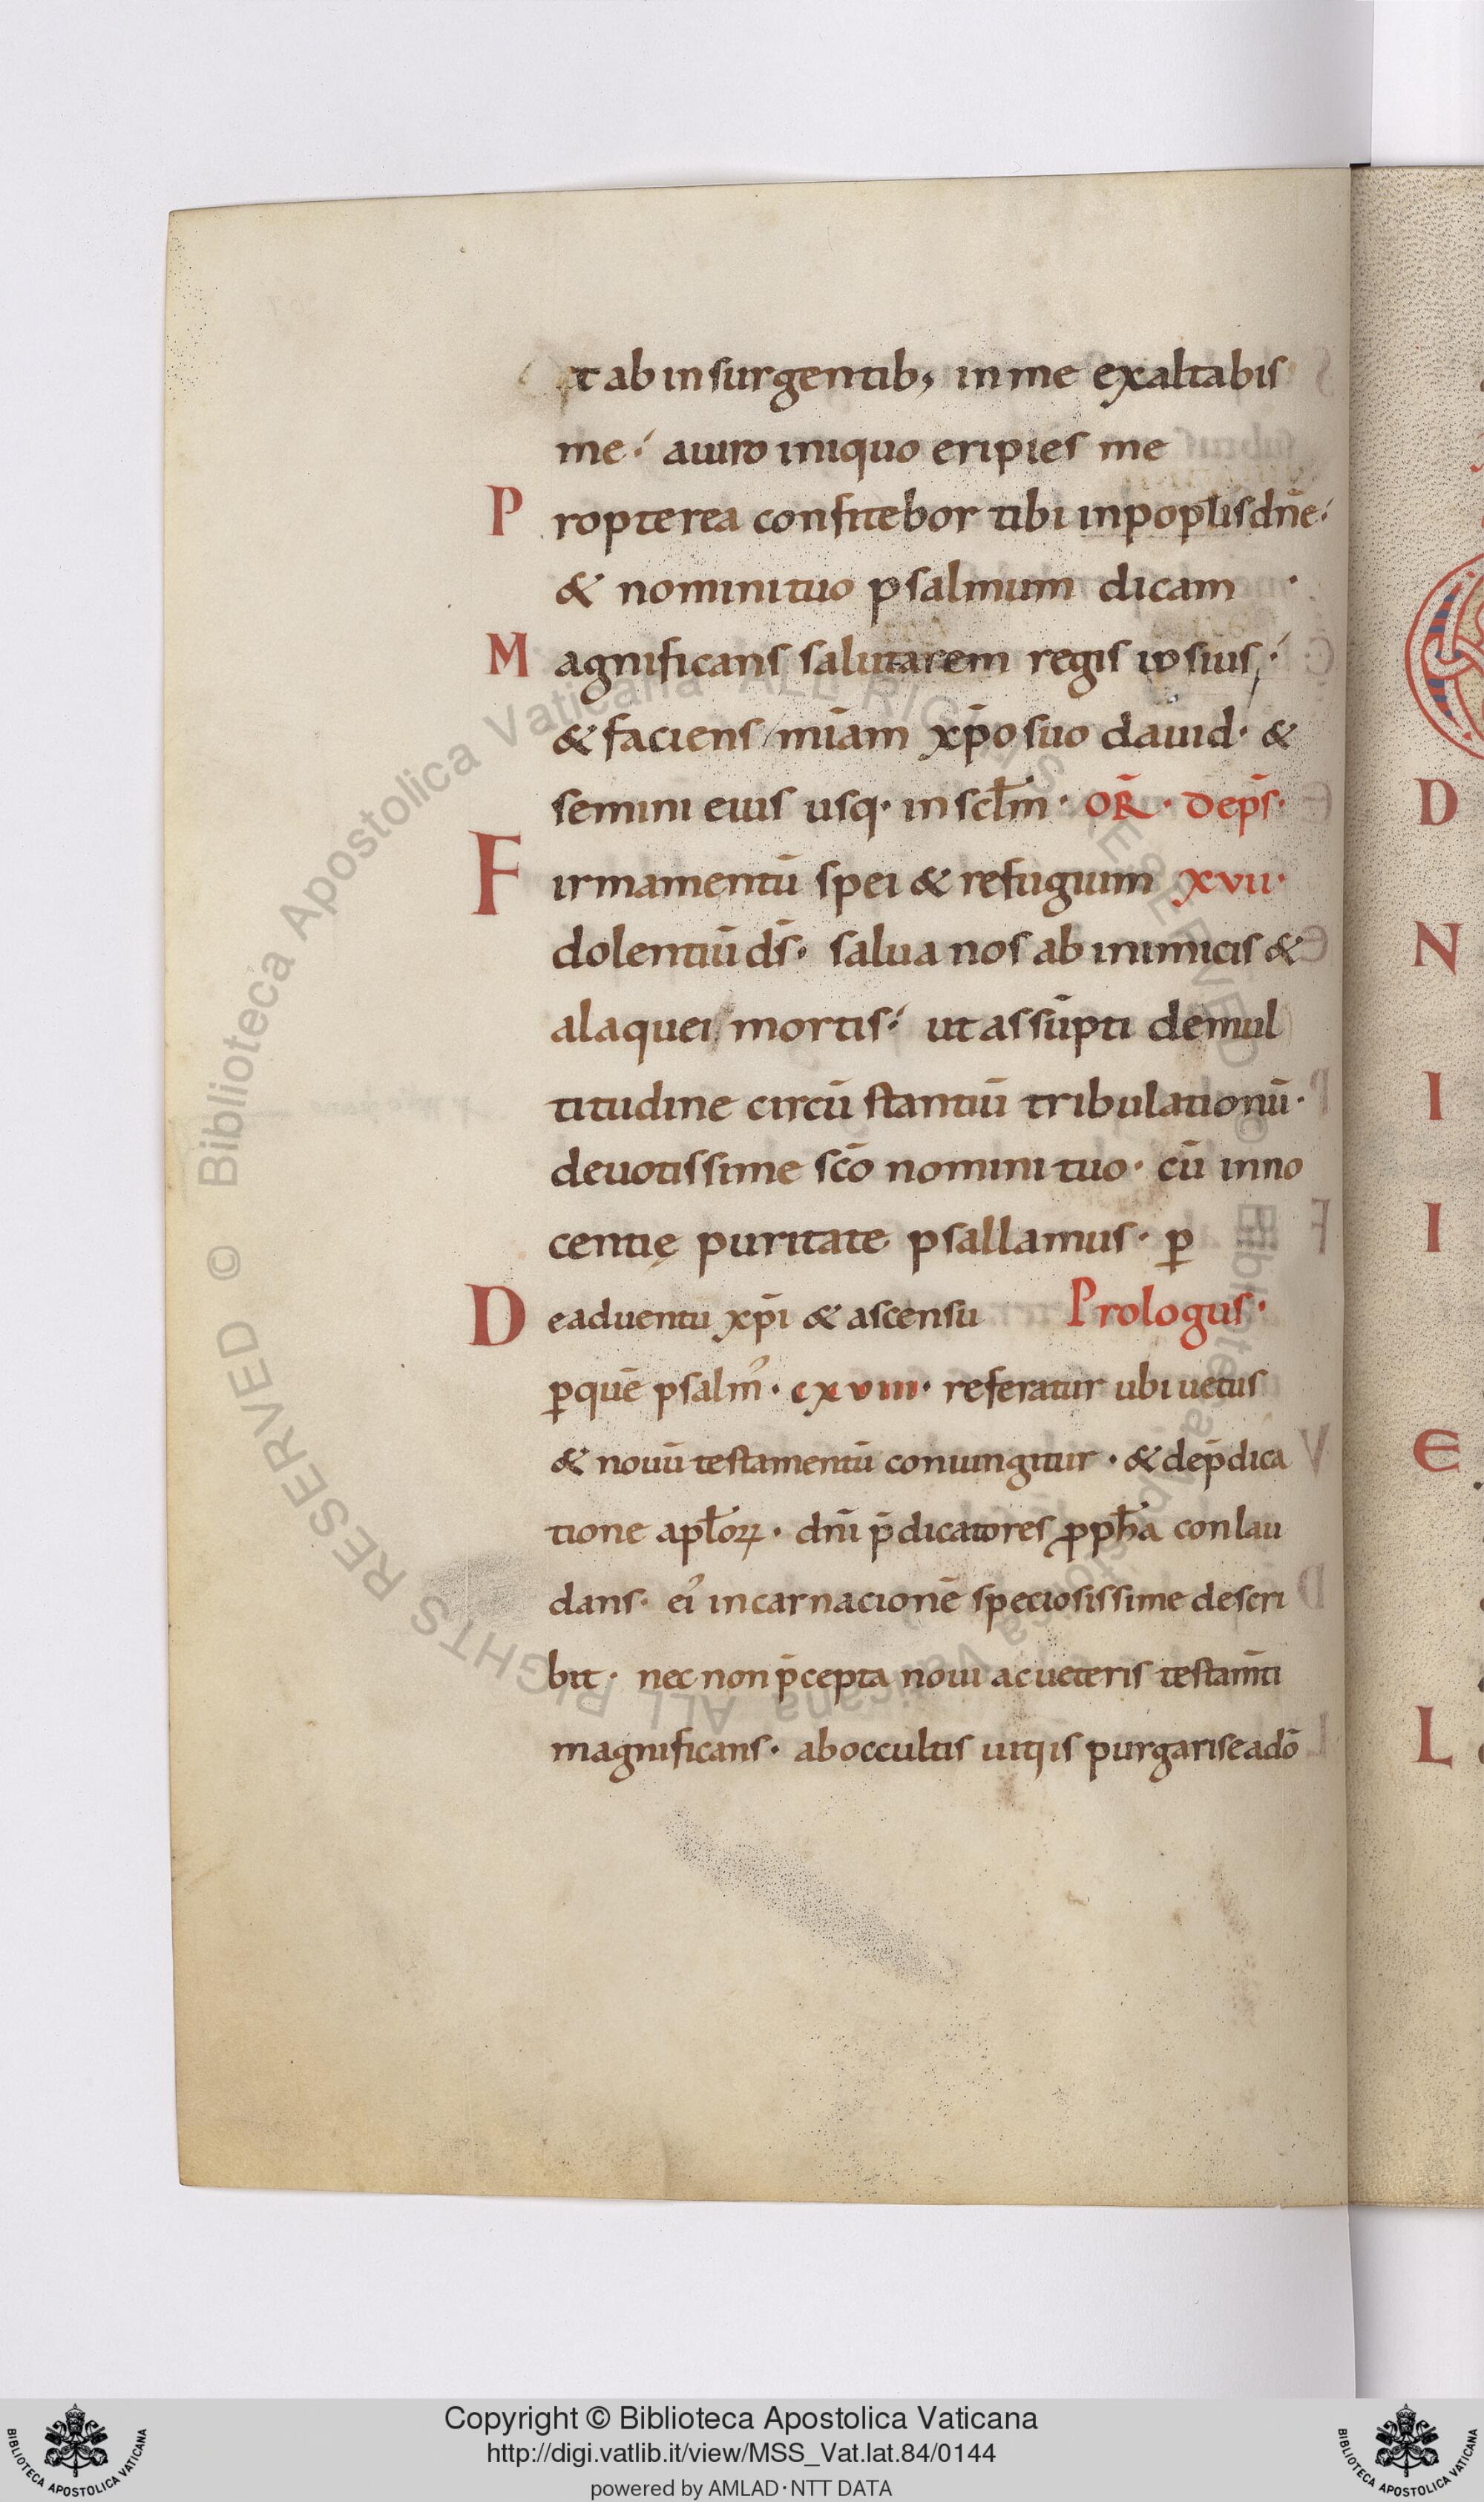 et ab insurgentib; in me exaltabis
me·́ auiro iniquo eripies me
Propterea confitebor tibi inpoplis dn̄e·́
& nomini tuo psalmum dicam ·
Magnificans salutarem regis ipsius·́
& faciens mīam xp̄o suo dauid· &
semini eius usq· in sclm̄· OR̄· dep̄s·
Firmamentū spei & refugium xvii·
dolentiū ds̄· salua nos ab inimicis &
alaquei mortis·́ ut assūpti demul
titudine circū stantiū tribulationū·
deuotissime scō nomini tuo· cū inno
centię puritate psallamus· ꝑ
De aduentu xp̄i & ascensu Prologus·
ꝑquē psalm̄· cxviii· referatur ubi uetus
& nouū testamentū coniungitur· & dep̄dica
tione apl̄oꝝ· dn̄i p̄dicatores ꝓph̄a conlau
dans· ei' incarnacionē speciosissime descri
bit· nec non p̄cepta noui ac ueteris testam̄ti
magnificans· ab occultis uitiis purgari se a dō
P
D
N
I
I
E
L
© Biblioteca Apostolica Vaticana ALL RIGHTS RESERVED
© Biblioteca Apostolica Vaticana ALL RIGHTS RESERVED
BIBLIOTECA APOSTOLICA VATICANA
Copyright © Biblioteca Apostolica Vaticana
http://digi.vatlib.it/view/MSS_Vat.lat.84/0144
powered by AMLAD·NTT DATA
BIBLIOTECA APOSTOLICA VATICANA